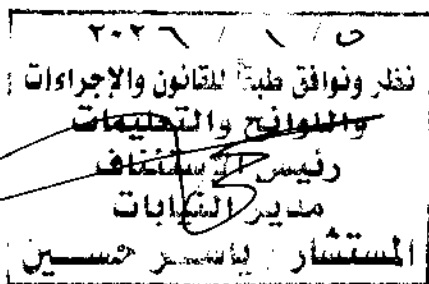 ٢٠٢٦ / ١ / ٥
نظر ونوافق طبقا للقانون والإجراءات
واللوائح والتعليمات
رئيس الاستئناف
مدير النيابات
المستشار / ياسر حسين